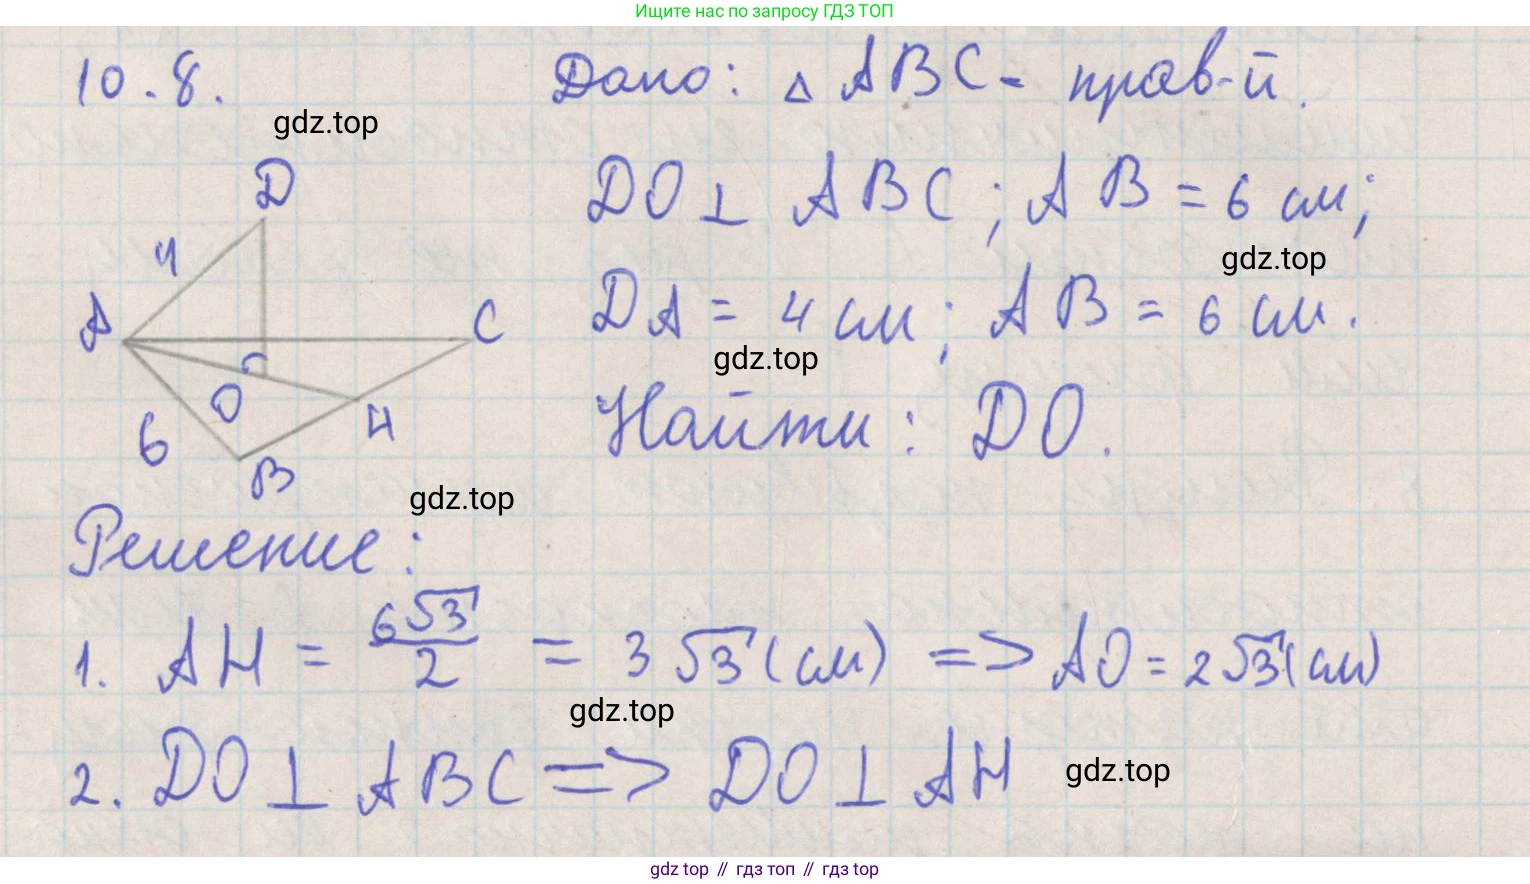 Ищите нас по запросу ГДЗ ТОП
10.8.
Дано: △ ABC - прав-й.
gdz.top
DO ⊥ ABC; AB = 6 см;
gdz.top
DA = 4 см; AB = 6 см.
gdz.top
Найти: DO.
D
4
A
C
O
H
6
B
gdz.top
Решение:
1. AH = 6√3/2 = 3√3 (см) => AO = 2√3 (см)
gdz.top
2. DO ⊥ ABC => DO ⊥ AH
gdz.top
gdz top // гдз топ // gdz top